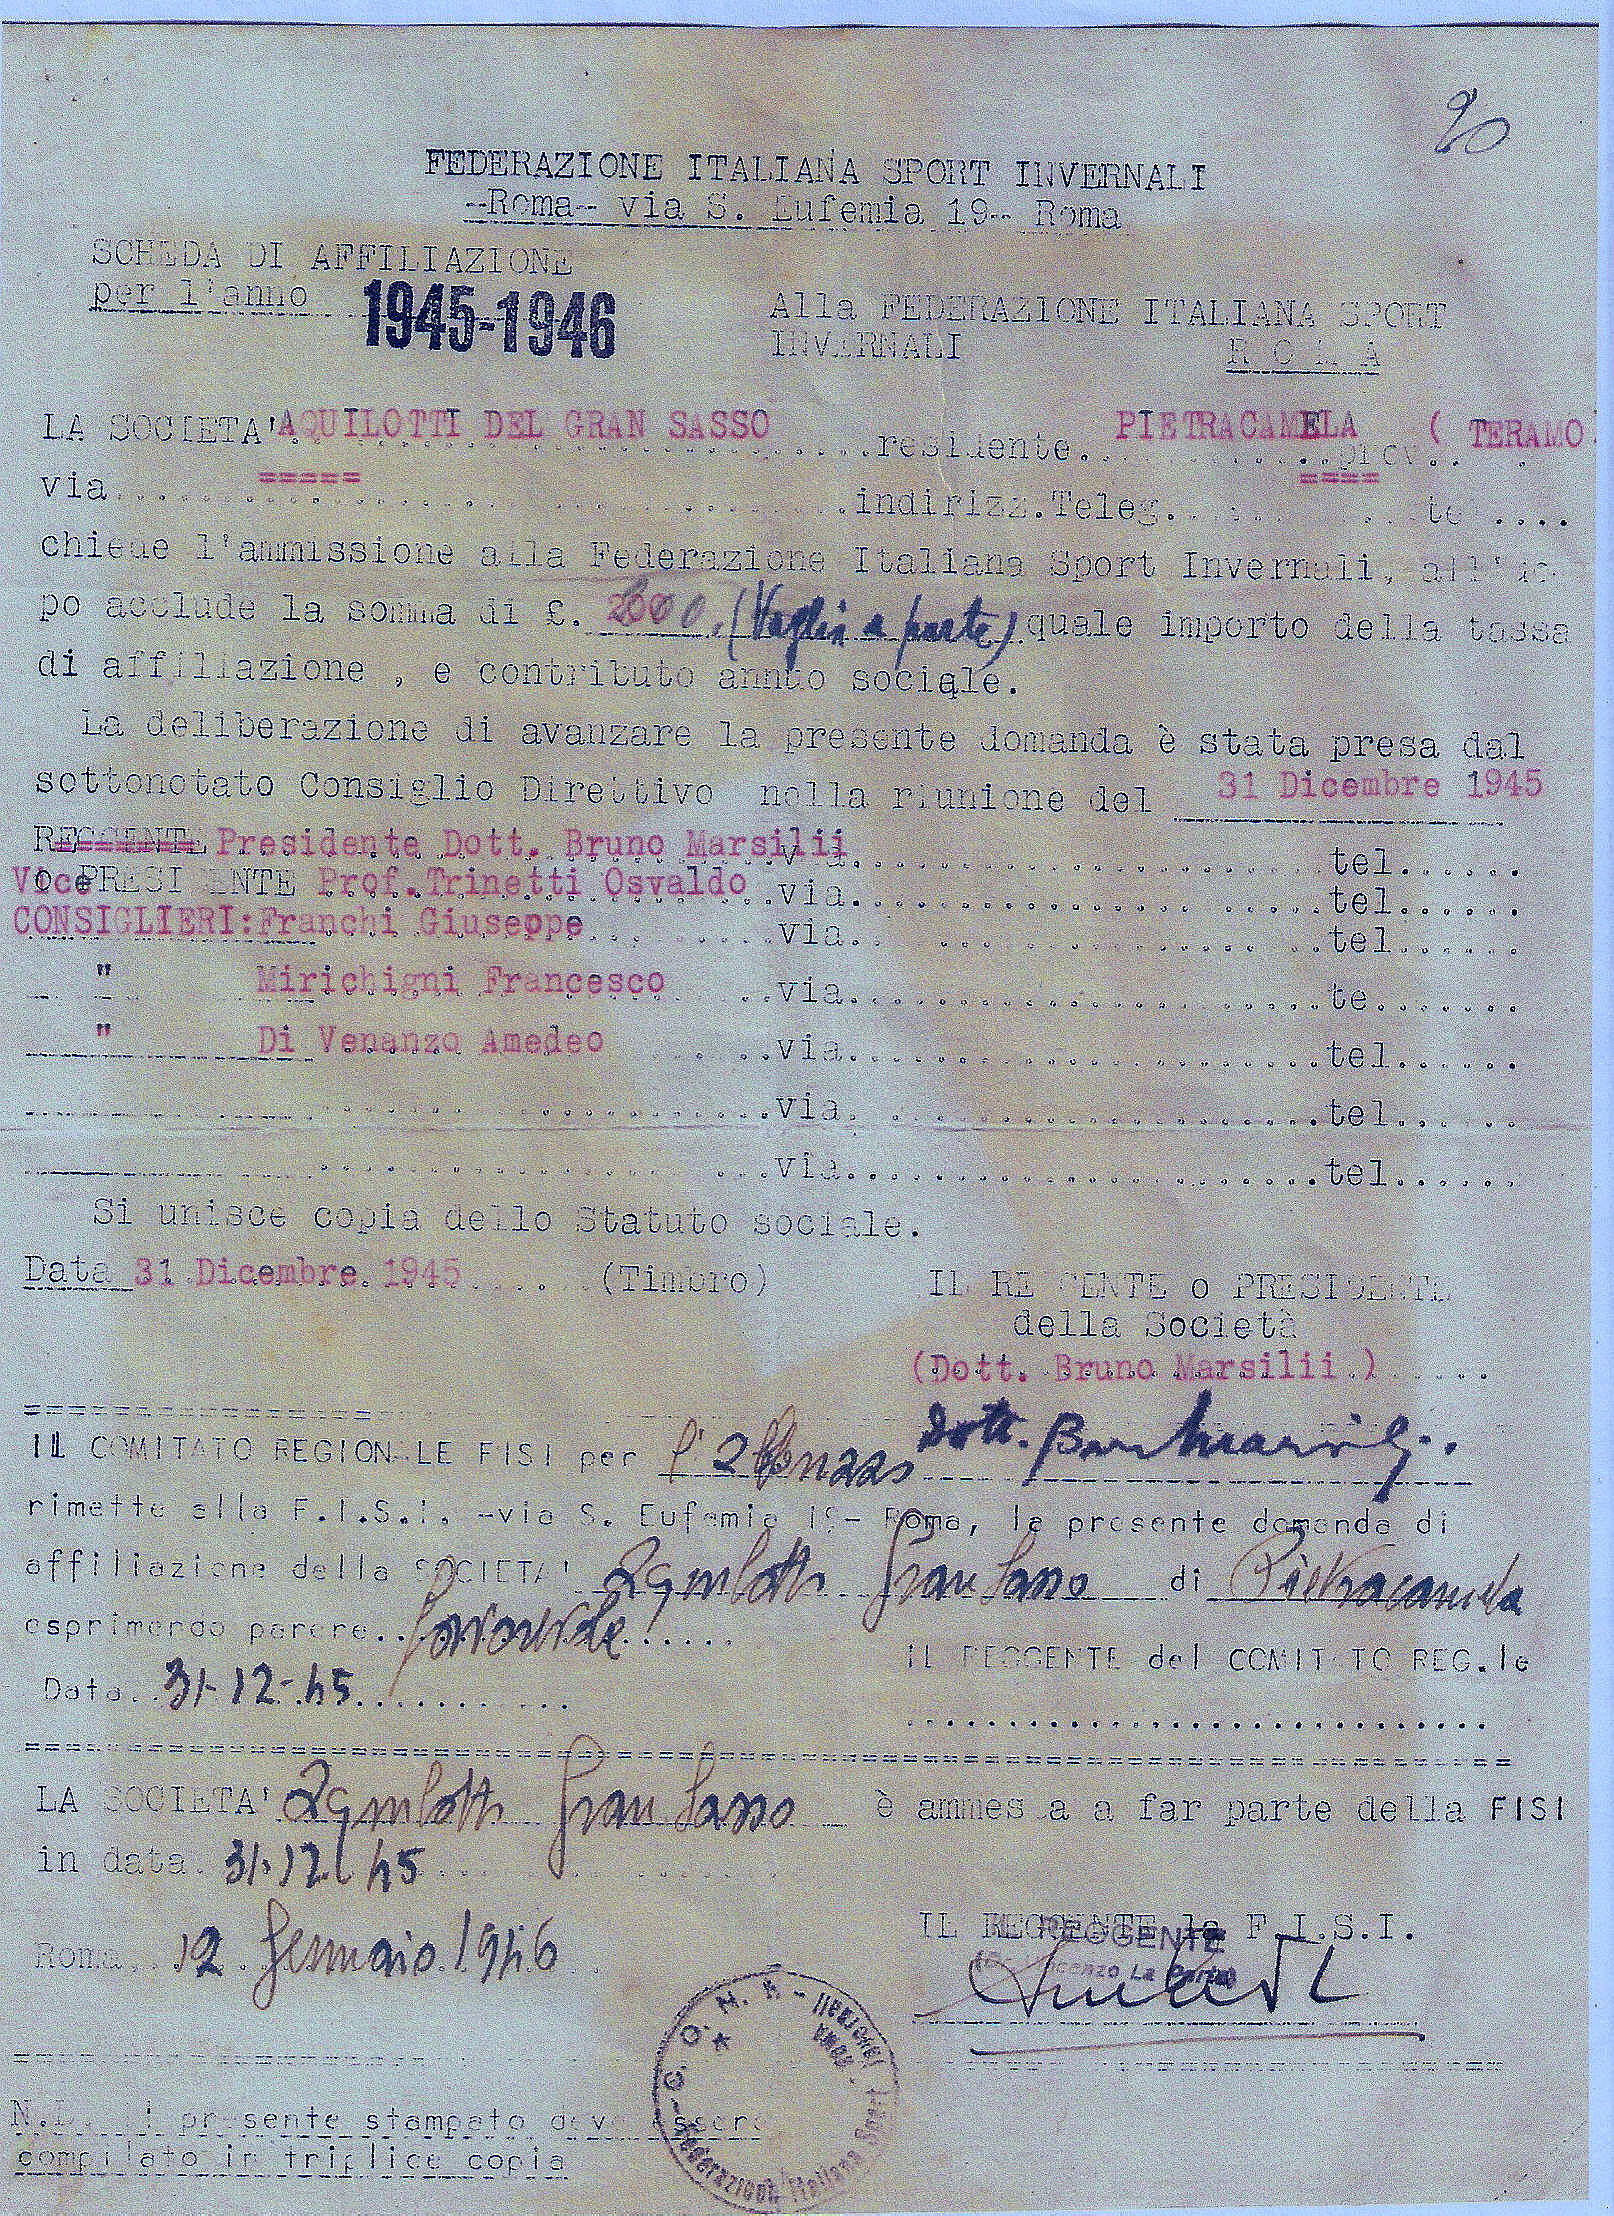 20
FEDERAZIONE ITALIANA SPORT INVERNALI
--Roma-- via S. Eufemia 19-- Roma
SCHEDA DI AFFILIAZIONE
per l'anno 1945-1946
Alla FEDERAZIONE ITALIANA SPORT
INVERNALI ROMA
LA SOCIETA' AQUILOTTI DEL GRAN SASSO residente PIETRACAMELA prov. ( TERAMO
via indirizz.Teleg. te
chiede l'ammissione alla Federazione Italiana Sport Invernali, all'uo
po acclude la somma di £. (Vaglia a parte) quale importo della tassa
di affiliazione , e contributo annuo sociale.
La deliberazione di avanzare la presente domanda è stata presa dal
sottonotato Consiglio Direttivo nella riunione del 31 Dicembre 1945
REGGENTE Presidente Dott. Bruno Marsilii via tel
Vice PRESIDENTE Prof.Trinetti Osvaldo via tel
CONSIGLIERI: Franchi Giuseppe via tel
" Mirichigni Francesco via te
" Di Venanzo Amedeo via tel
via tel
via tel
Si unisce copia dello Statuto sociale.
Data 31 Dicembre 1945 (Timbro)
IL REGGENTE o PRESIDENTE
della Società
(Dott. Bruno Marsilii )
Dott. Bruno Marsilii
IL COMITATO REGIONALE FISI per l'Abruzzo
rimette alla F.I.S.I. -via S. Eufemia 19- Roma, la presente domanda di
affiliazione della SOCIETA' Aquilotti Gran Sasso di Pietracamela
esprimendo parere favorevole
IL REGGENTE del COMITATO REG.le
Data 31-12-45
LA SOCIETA' Aquilotti Gran Sasso è ammessa a far parte della FISI
in data 31.12.45
IL REGGENTE la F.I.S.I.
REGGENTE
Roma 12 Gennaio 1946
C.O.N.I. - Federazione Italiana Sport Invernali ROMA
N.B. Il presente stampato deve essere
compilato in triplice copia